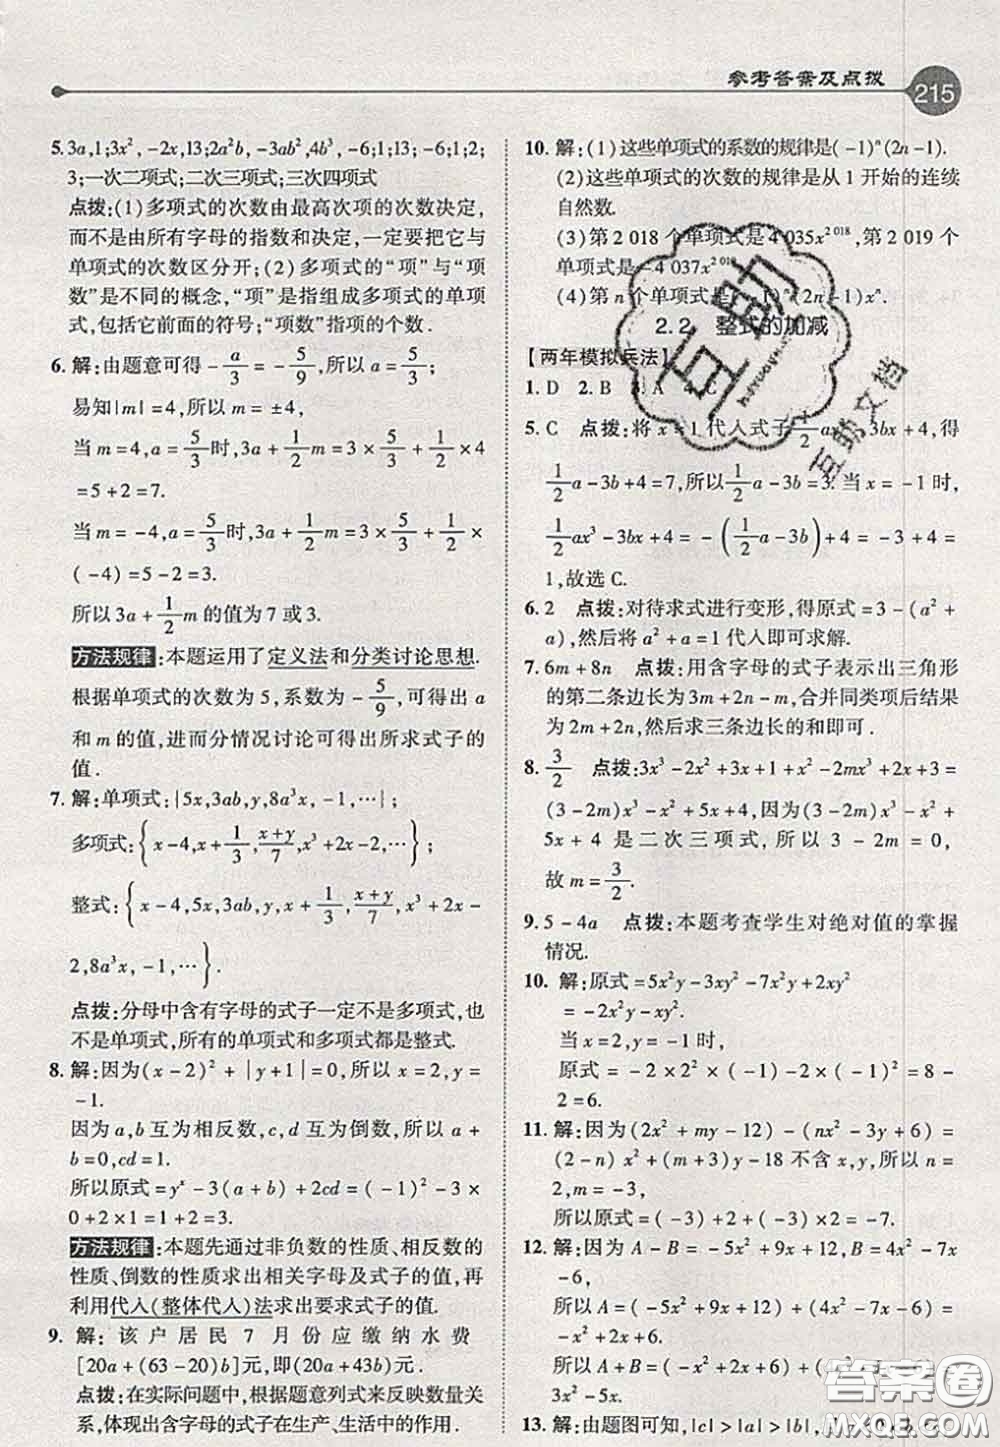 参考答案及点拨
215
5. 3a,1;3x²,-2x,13;2a²b,-3ab²,4b³,-6;1;13;-6;1;2;
3;一次二项式;二次三项式;三次四项式
点拨:(1)多项式的次数由最高次项的次数决定,
而不是由所有字母的指数和决定,一定要把它与
单项式的次数区分开;(2)多项式的“项”与“项
数”是不同的概念,“项”是指组成多项式的单项
式,包括它前面的符号;“项数”指项的个数.
6. 解:由题意可得-a/3=-5/9,所以a=5/3;
易知|m|=4,所以m=±4,
当m=4,a=5/3时,3a+1/2m=3×5/3+1/2×4
=5+2=7.
当m=-4,a=5/3时,3a+1/2m=3×5/3+1/2×
(-4)=5-2=3.
所以3a+1/2m的值为7或3.
方法规律:本题运用了定义法和分类讨论思想.
根据单项式的次数为5,系数为-5/9,可得出a
和m的值,进而分情况讨论可得出所求式子的
值.
7. 解:单项式:{5x,3ab,y,8a³x,-1,…};
多项式:{x-4,x+1/3,(x+y)/7,x³+2x-2,…};
整式:{x-4,5x,3ab,y,x+1/3,(x+y)/7,x³+2x-
2,8a³x,-1,…}.
点拨:分母中含有字母的式子一定不是多项式,也
不是单项式,所有的单项式和多项式都是整式.
8. 解:因为(x-2)²+|y+1|=0,所以x=2,y=
-1.
因为a,b互为相反数,c,d互为倒数,所以a+
b=0,cd=1.
所以原式=yˣ-3(a+b)+2cd=(-1)²-3×
0+2×1=1-0+2=3.
方法规律:本题先通过非负数的性质、相反数的
性质、倒数的性质求出相关字母及式子的值,再
利用代人(整体代人)法求出要求式子的值.
9. 解:该户居民7月份应缴纳水费
[20a+(63-20)b]元,即(20a+43b)元.
点拨:在实际问题中,根据题意列式来反映数量关
系,体现出含字母的式子在生产、生活中的作用.
10. 解:(1)这些单项式的系数的规律是(-1)ⁿ(2n-1).
(2)这些单项式的次数的规律是从1开始的连续
自然数.
(3)第2 018个单项式是4 035x² ⁰¹⁸,第2 019个
单项式是-4 037x² ⁰¹⁹.
(4)第n个单项式是(-1)ⁿ(2n-1)xⁿ.
2.2 整式的加减
【两年模拟兵法】
1. D 2. B 3. A 4. C
5. C 点拨:将x=1代人式子1/2ax³-3bx+4,得
1/2a-3b+4=7,所以1/2a-3b=3.当x=-1时,
1/2ax³-3bx+4=-(1/2a-3b)+4=-3+4=
1,故选C.
6. 2 点拨:对待求式进行变形,得原式=3-(a²+
a),然后将a²+a=1代人即可求解.
7. 6m+8n 点拨:用含字母的式子表示出三角形
的第二条边长为3m+2n-m,合并同类项后结果
为2m+2n,然后求三条边长的和即可.
8. 3/2 点拨:3x³-2x²+3x+1+x²-2mx³+2x+3=
(3-2m)x³-x²+5x+4,因为(3-2m)x³-x²+
5x+4是二次三项式,所以3-2m=0,
故m=3/2.
9. 5-4a 点拨:本题考查学生对绝对值的掌握
情况.
10. 解:原式=5x²y-3xy²-7x²y+2xy²
=-2x²y-xy².
当x=2,y=-1时,
原式=-2×2²×(-1)-2×(-1)²=8-
2=6.
11. 解:因为(2x²+my-12)-(nx²-3y+6)=
(2-n)x²+(m+3)y-18不含x,y,所以n=
2,m=-3,
所以原式=(-3)+2+(-3)×2=-7.
12. 解:因为A-B=-5x²+9x+12,B=4x²-7x
-6,
所以A=(-5x²+9x+12)+(4x²-7x-
6)=-x²+2x+6.
所以A+B=(-x²+2x+6)+(4x²-7x-6)=
3x²-5x.
13. 解:由题图可知,|c|>|a|>|b|,
互助
互助文档
答案圈
MXQE.COM